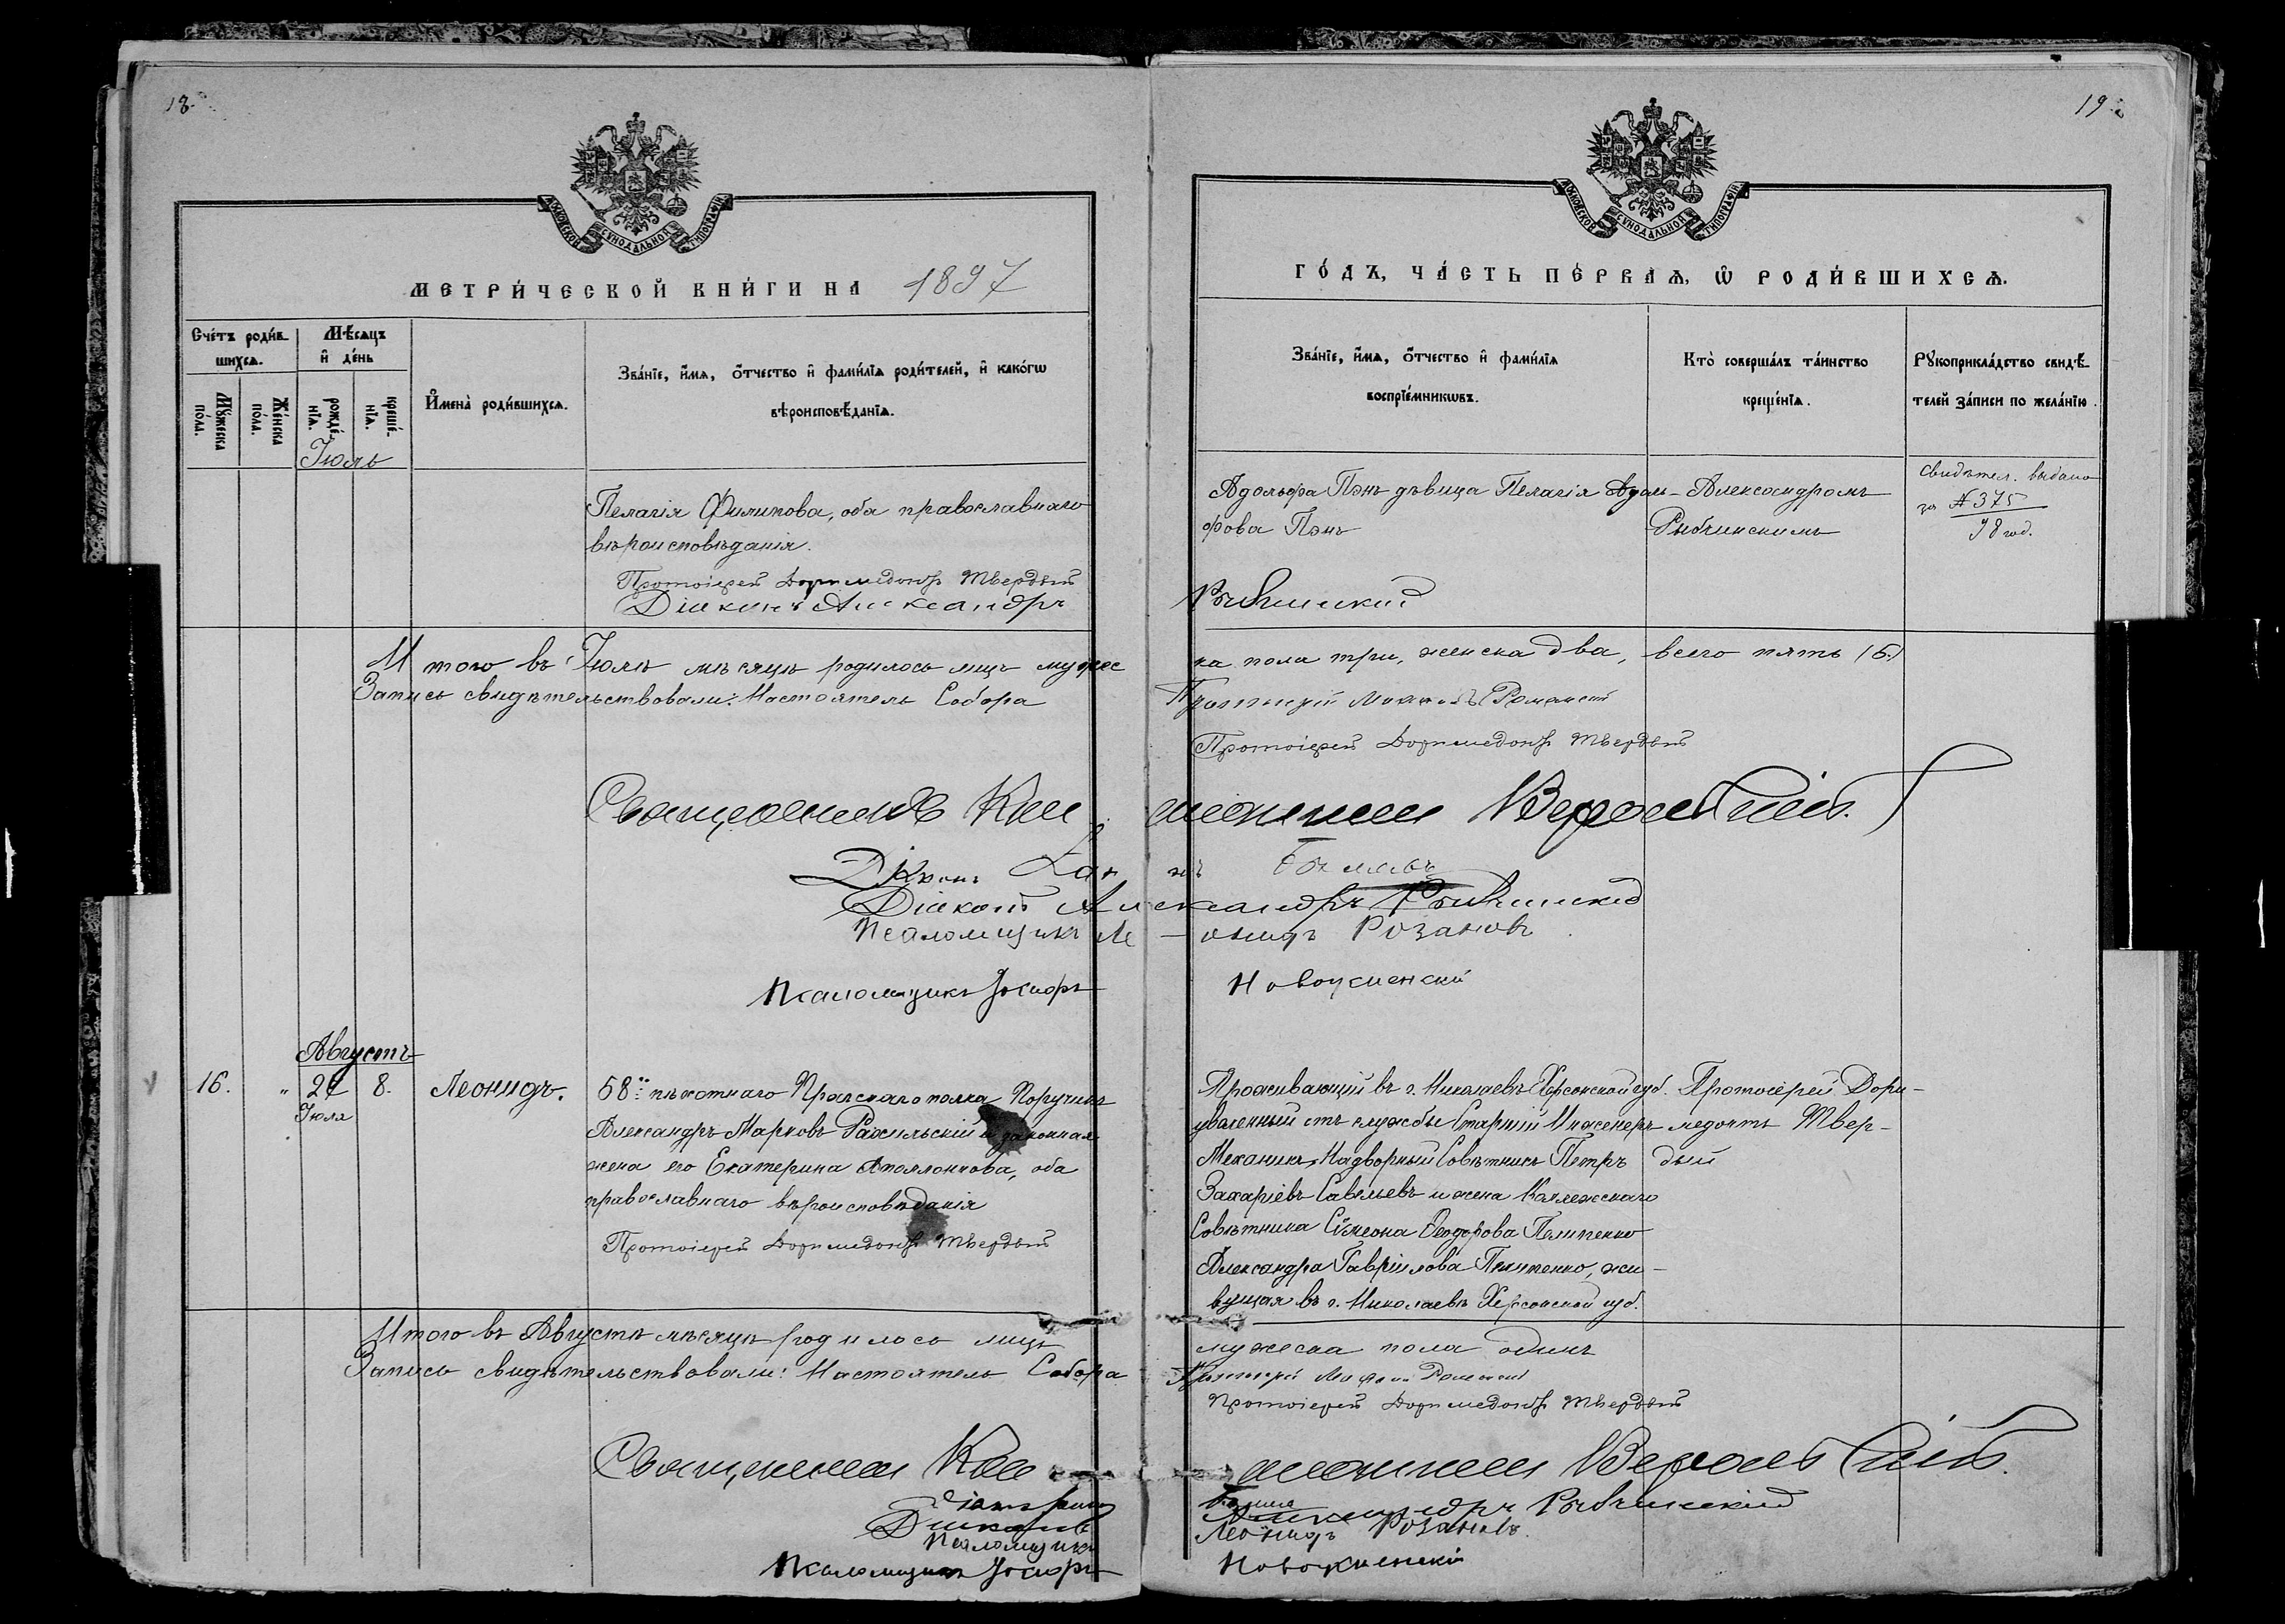 18.
МОСКОВСКОЙ СѴНОДАЛЬНОЙ ТИПОГРАФІИ
МЕТРИ́ЧЕСКОЙ КНИ́ГИ НА 1897
Счéтъ роди́в-
шихсѧ.
Мѣ́сѧцъ
и҆ дéнь
Мꙋ́жеска
пóла.
Жéнска
пóла.
рождé-
нїѧ.
крещé-
нїѧ.
И҆менà роди́вшихсѧ.
Звáнїе, и҆́мѧ, ѻ҆́тчество и҆ фами́лїѧ роди́телей, и҆ какóгѡ
вѣроисповѣ́данїѧ.
Іюль
Пелагія Филипова, оба православнаго
вѣроисповѣданія.
Протоіерей Доримедонтъ Твердый
Діаконъ Александръ
Итого въ Іюлѣ мѣсяцѣ родилось лицъ мужес
Запись свидѣтельствовали: Настоятель Собора
Священникъ
Діаконъ
Діаконъ Але
Псаломщикъ Ле
Псаломщикъ Іосифъ
Августъ
16. " 8. Леонидъ. 58го пѣхотнаго Прагскаго полка Поручикъ
Іюля
Александръ Марковъ и законная
жена его Екатерина Аполлонова, оба
православнаго вѣроисповѣданія
Протоіерей Доримедонтъ Твердый
Итого въ Августѣ мѣсяцѣ родилось лицъ
Запись свидѣтельствовали: Настоятель Собора
Священникъ
Діаконъ
Псаломщикъ
Псаломщикъ Іосифъ
19.
МОСКОВСКОЙ СѴНОДАЛЬНОЙ ТИПОГРАФІИ
ГÓДЪ, ЧÁСТЬ ПÉРВАѦ, Ѿ РОДИ́ВШИХСѦ.
Звáнїе, и҆́мѧ, ѻ҆́тчество и҆ фами́лїѧ
воспрїéмникѡвъ.
Ктò совершáлъ тáинство
крещéнїѧ.
Рꙋкоприклáдство свидѣ́-
телей зáписи по желáнїю.
Адольфа Пэнъ дѣвица Пелагія Адоль-
фова Пэнъ
Александромъ
Рыбчинскимъ
Свидѣтел. выдано
за № 375
98 год.
Рыбчинскій
ка пола три, женска два, всего пять (5.)
Протоіерей
Протоіерей Доримедонтъ Твердый
ксандръ Рыбчинскій
онидъ Розановъ
Проживающій въ г. Николаевѣ Херсонской губ.
уволенный отъ службы Старшій Инженеръ
Механикъ, Надворный Совѣтникъ Петръ
Захаріевъ Савельевъ и жена Коллежскаго
Совѣтника Сѵмеона Ѳеодорова Пелипенко
Александра Гавріилова Пелипенко, жи-
вущая въ г. Николаевѣ Херсонской губ.
Протоіерей Дори-
медонтъ Твер-
дый
мужеска пола одинъ
Протоіерей
Протоіерей Доримедонтъ Твердый
Александръ Рыбчинскій
Леонидъ Розановъ.